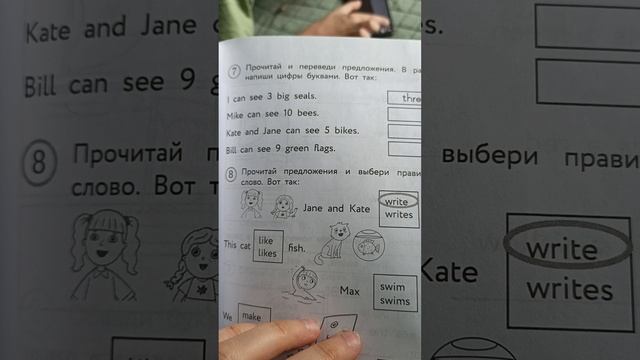 7 Прочитай и переведи предложения. В
напиши цифры буквами. Вот так:
I can see 3 big seals.
thre
Mike can see 10 bees.
Kate and Jane can see 5 bikes.
Bill can see 9 green flags.
8 Прочитай предложения и выбери прави
слово. Вот так:
Jane and Kate write
writes
This cat like fish.
likes
Max swim
swims
We make
Kate and Jane
s.
Bill can see 9
8 Прочитай
слово. Вот
выбери прави
Kate write
writes